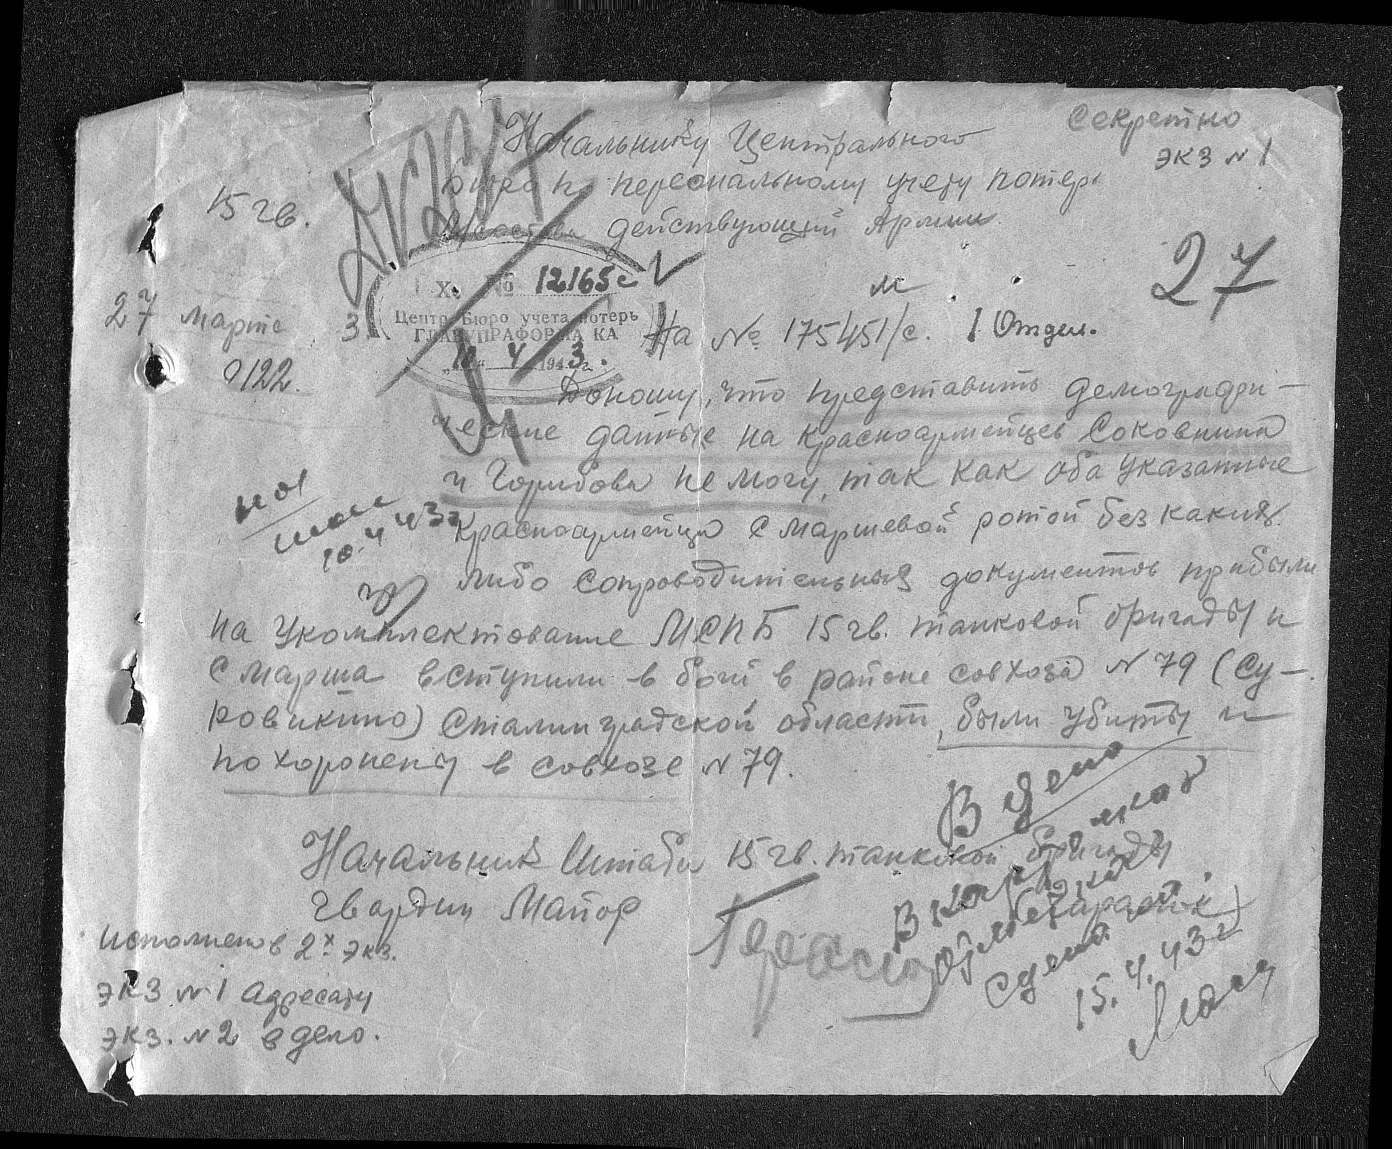 Секретно
экз № 1
Начальнику Центрального
бюро по персональному учету потерь
состава действующей Армии
15 гв.
27 марта 3
0122.
Х. № 12165с
Центр. Бюро учета потерь
ГЛАВУПРАФОРМА КА
10 4 1943г.
27
На № 175451/с. 1 Отдел.
Доношу, что представить демографи-
ческие данные на красноармейцев Соковнина
и Горибова не могу, так как оба указанные
красноармейца с маршевой ротой без каких
либо сопроводительных документов прибыли
на укомплектование МСПБ 15 гв. танковой бригады и
с марша вступили в бой в районе совхоза № 79 (Су-
ровикино) Сталинградской области, были убиты и
похоронены в совхозе № 79.
10.4.43г
Начальник Штаба 15 гв. танковой бригады
гвардии Майор
В дело
отметка
сделана
15.4.43г
Исполнено в 2х экз.
экз № 1 адресату
экз. № 2 в дело.